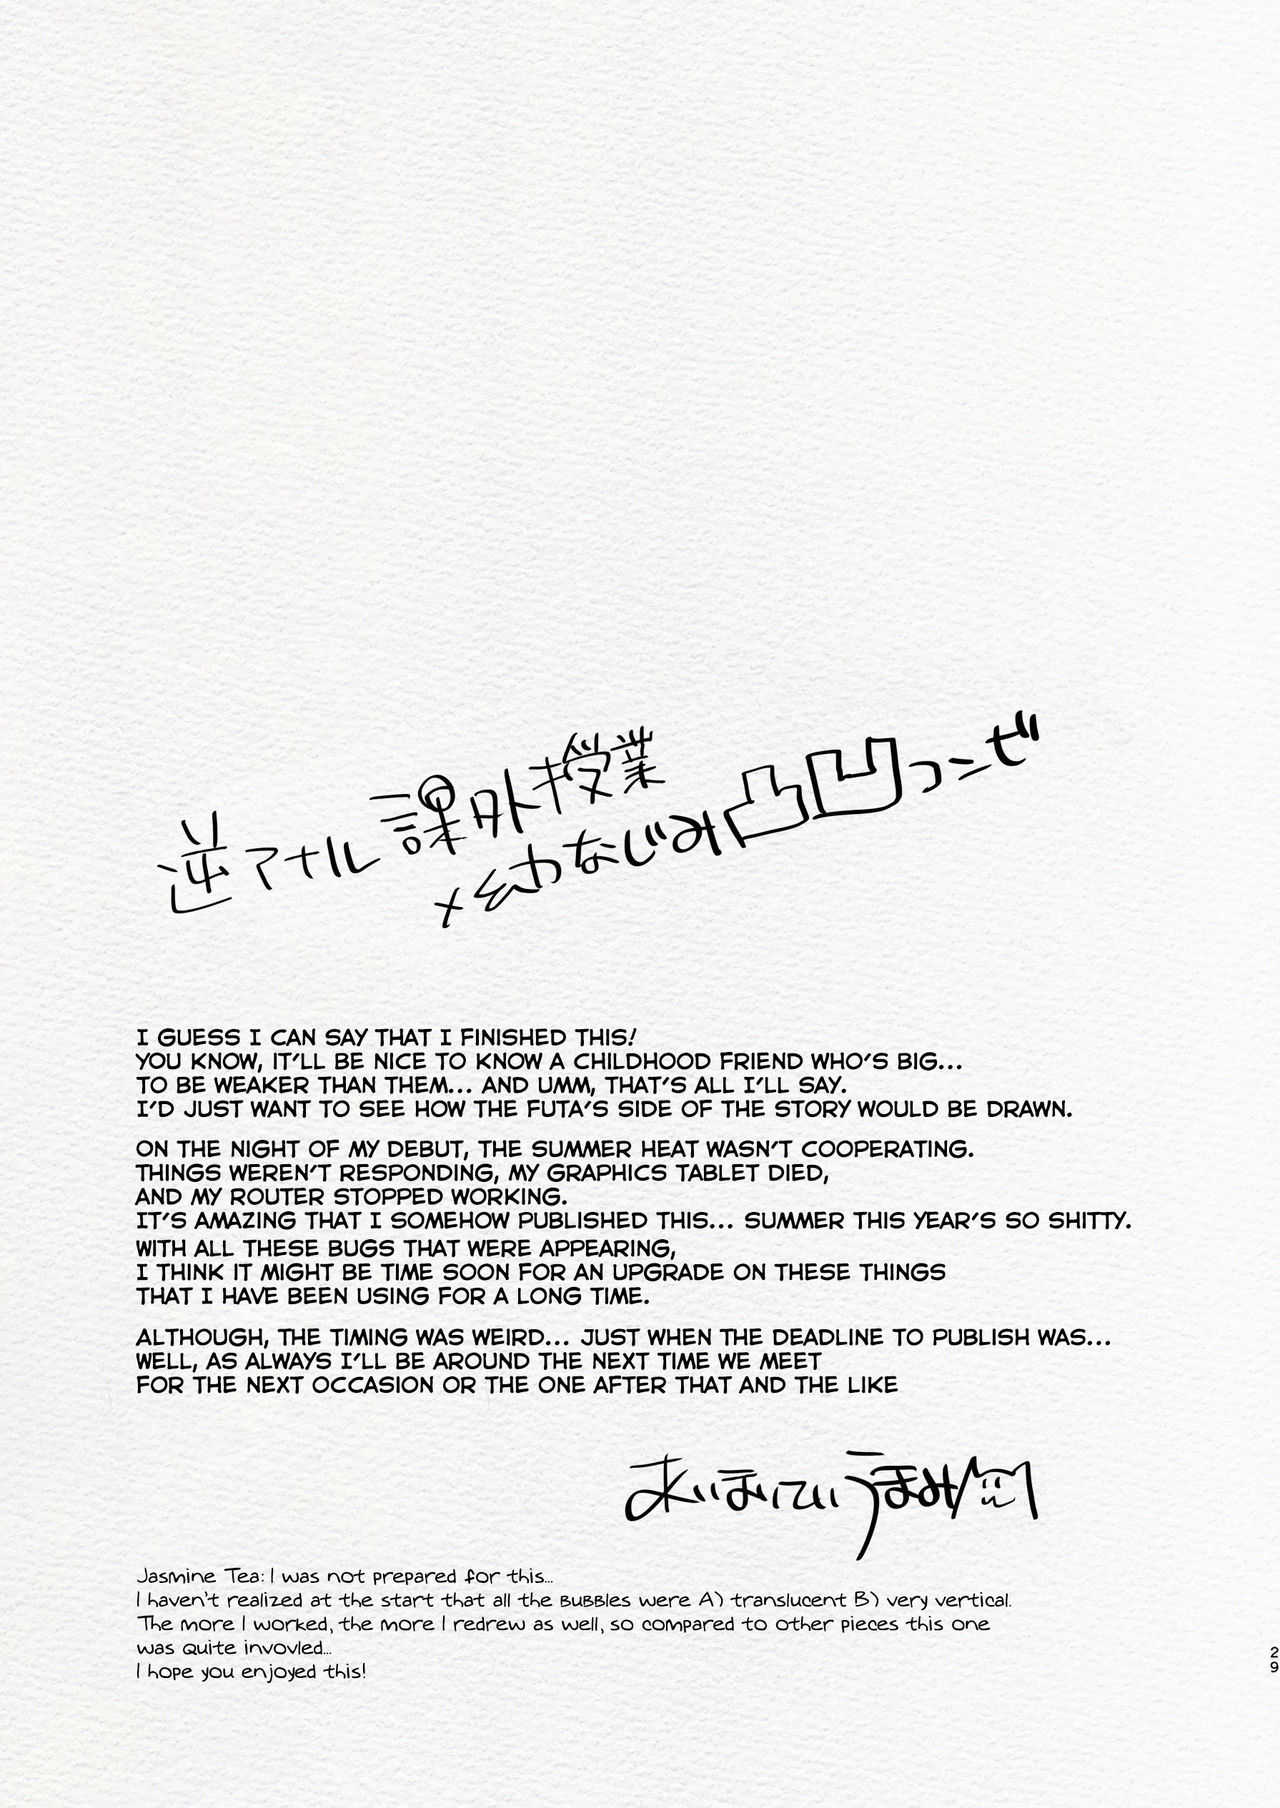 逆アナル課外授業
×幼なじみ凸凹コンビ
I GUESS I CAN SAY THAT I FINISHED THIS!
YOU KNOW, IT'LL BE NICE TO KNOW A CHILDHOOD FRIEND WHO'S BIG...
TO BE WEAKER THAN THEM... AND UMM, THAT'S ALL I'LL SAY.
I'D JUST WANT TO SEE HOW THE FUTA'S SIDE OF THE STORY WOULD BE DRAWN.
ON THE NIGHT OF MY DEBUT, THE SUMMER HEAT WASN'T COOPERATING.
THINGS WEREN'T RESPONDING, MY GRAPHICS TABLET DIED,
AND MY ROUTER STOPPED WORKING.
IT'S AMAZING THAT I SOMEHOW PUBLISHED THIS... SUMMER THIS YEAR'S SO SHITTY.
WITH ALL THESE BUGS THAT WERE APPEARING,
I THINK IT MIGHT BE TIME SOON FOR AN UPGRADE ON THESE THINGS
THAT I HAVE BEEN USING FOR A LONG TIME.
ALTHOUGH, THE TIMING WAS WEIRD... JUST WHEN THE DEADLINE TO PUBLISH WAS...
WELL, AS ALWAYS I'LL BE AROUND THE NEXT TIME WE MEET
FOR THE NEXT OCCASION OR THE ONE AFTER THAT AND THE LIKE
Jasmine Tea: I was not prepared for this...
I haven't realized at the start that all the BUBBLES were A) translucent B) very vertical.
The more I worked, the more I redrew as well, so compared to other pieces this one
was quite invovled...
I hope you enjoyed this!
29